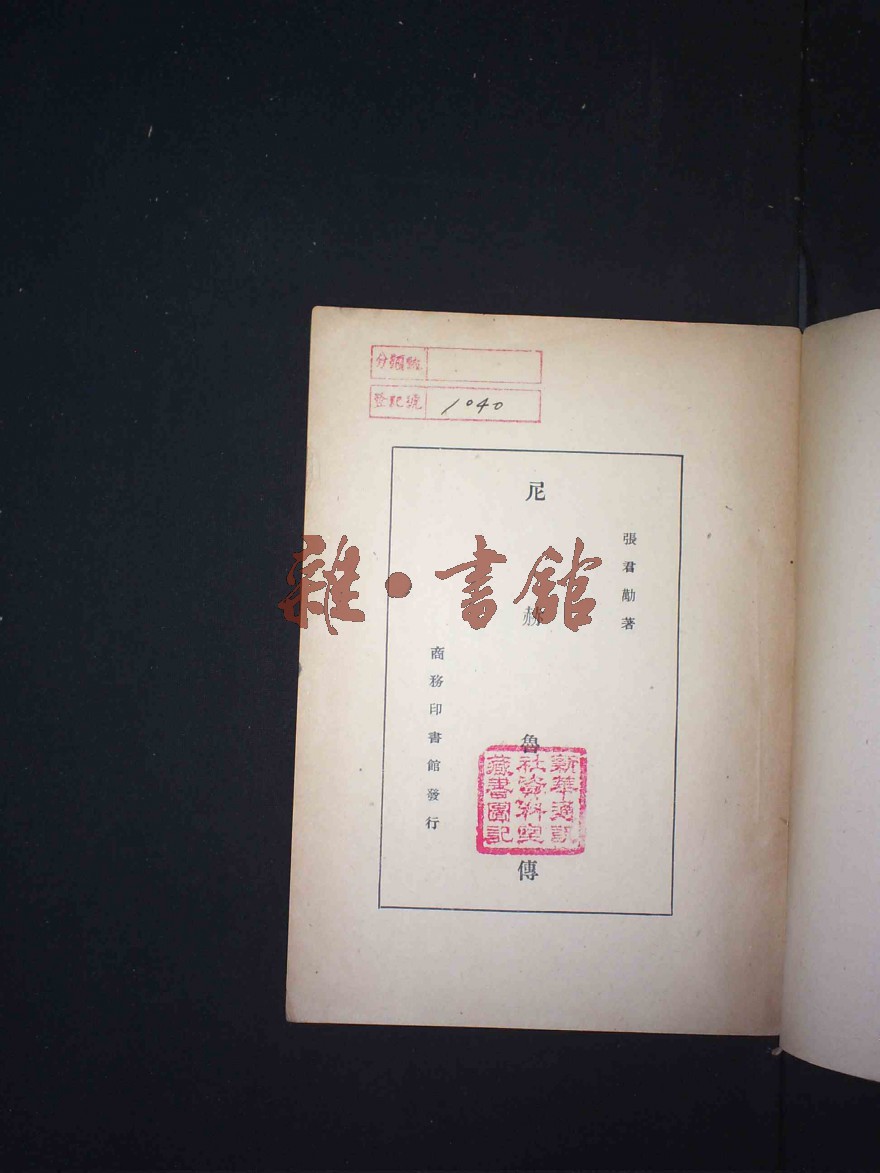 分類號
登記號 1040
張君勱著
尼赫魯傳
商務印書館發行
新華通訊
社資料室
藏書圖記
雜·書館